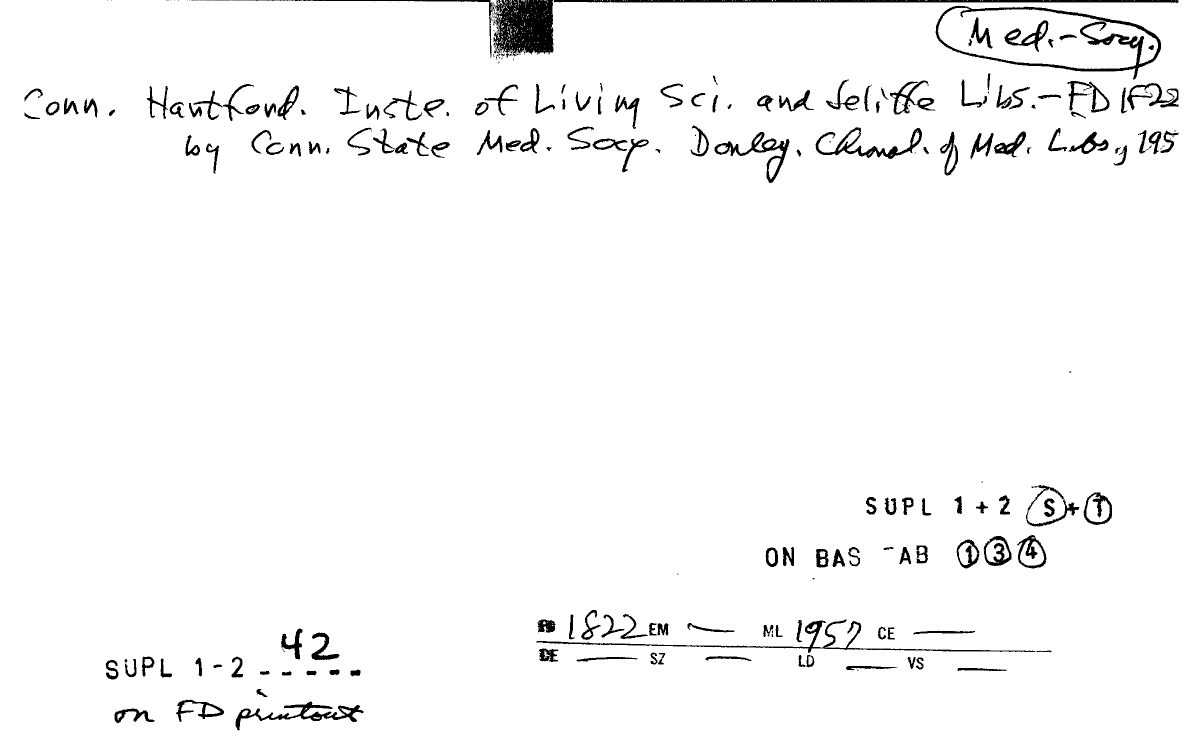 Med.-Socy.
Conn. Hartford. Inste. of Living Sci. and Jeliffe Libs.-FD 1822
by Conn. State Med. Socy. Donley. Chronol. of Med. Libs, 195
SUPL 1+2 S+T
ON BAS TAB 1 3 4
1822 EM — ML 1957 CE —
DE — SZ — LD — VS —
42
SUPL 1-2 -----
on FD printout